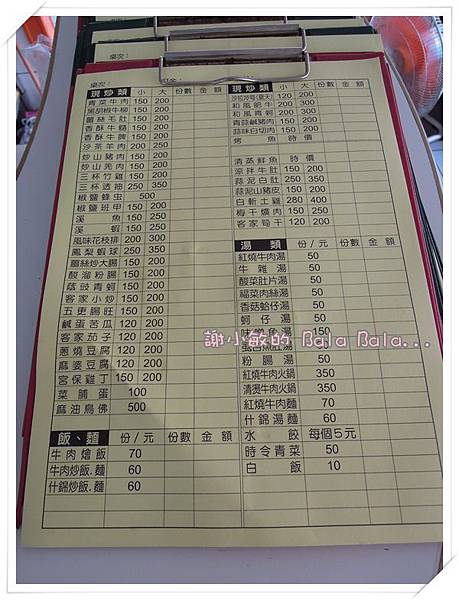 桌次:
現炒類 小 大 份數 金額
青菜牛肉 150 200
黑胡椒牛柳 150 200
薑絲毛肚 150 200
香酥牛髓 150 200
香酥牛脾 150 200
沙茶羊肉 150 250
炒山豬肉 150 200
炒山羌肉 150 200
三杯竹雞 150 200
三杯透抽 250 350
椒鹽蜂虫 500
椒鹽班甲 150 200
溪魚 150 200
溪蝦 150 200
風味花枝排 200 300
鳳梨蝦球 250 350
薑絲炒大腸 150 200
酸溜粉腸 150 200
蔭豉青蚵 150 200
客家小炒 150 200
五更腸旺 150 200
鹹蛋苦瓜 120 200
客家茄子 120 200
蔥燒豆腐 120 200
麻婆豆腐 120 200
宮保雞丁 150 200
菜脯蛋 100
麻油烏佛 500
飯、麵 份/元 份數 金額
牛肉燴飯 70
牛肉炒飯.麵 60
什錦炒飯.麵 60
現炒類 小 大 份數 金額
沙拉沙筍(夏天) 120 200
和風肥牛 200 300
和風青蚵 200 300
青蒜鹹豬肉 150 200
蒜味白切肉 150 200
烤魚 時價
清蒸鮮魚 時價
涼拌牛肚 150 200
蒜泥白肚 250 350
蒜泥山豬皮 150 200
白斬土雞 280 400
梅干爌肉 150 200
客家筍干 120 200
湯類 份/元 份數 金額
紅燒牛肉湯 50
牛雜湯 50
酸菜肚片湯 50
福菜肉絲湯 50
香菇蛤仔湯 50
蚵仔湯 50
味噌魚湯 50
粉腸湯 50
紅燒牛肉火鍋 350
清燙牛肉火鍋 350
紅燒牛肉麵 70
什錦湯麵 60
水餃 每個5元
時令青菜 50
白飯 10
謝小敏的 Bala Bala...